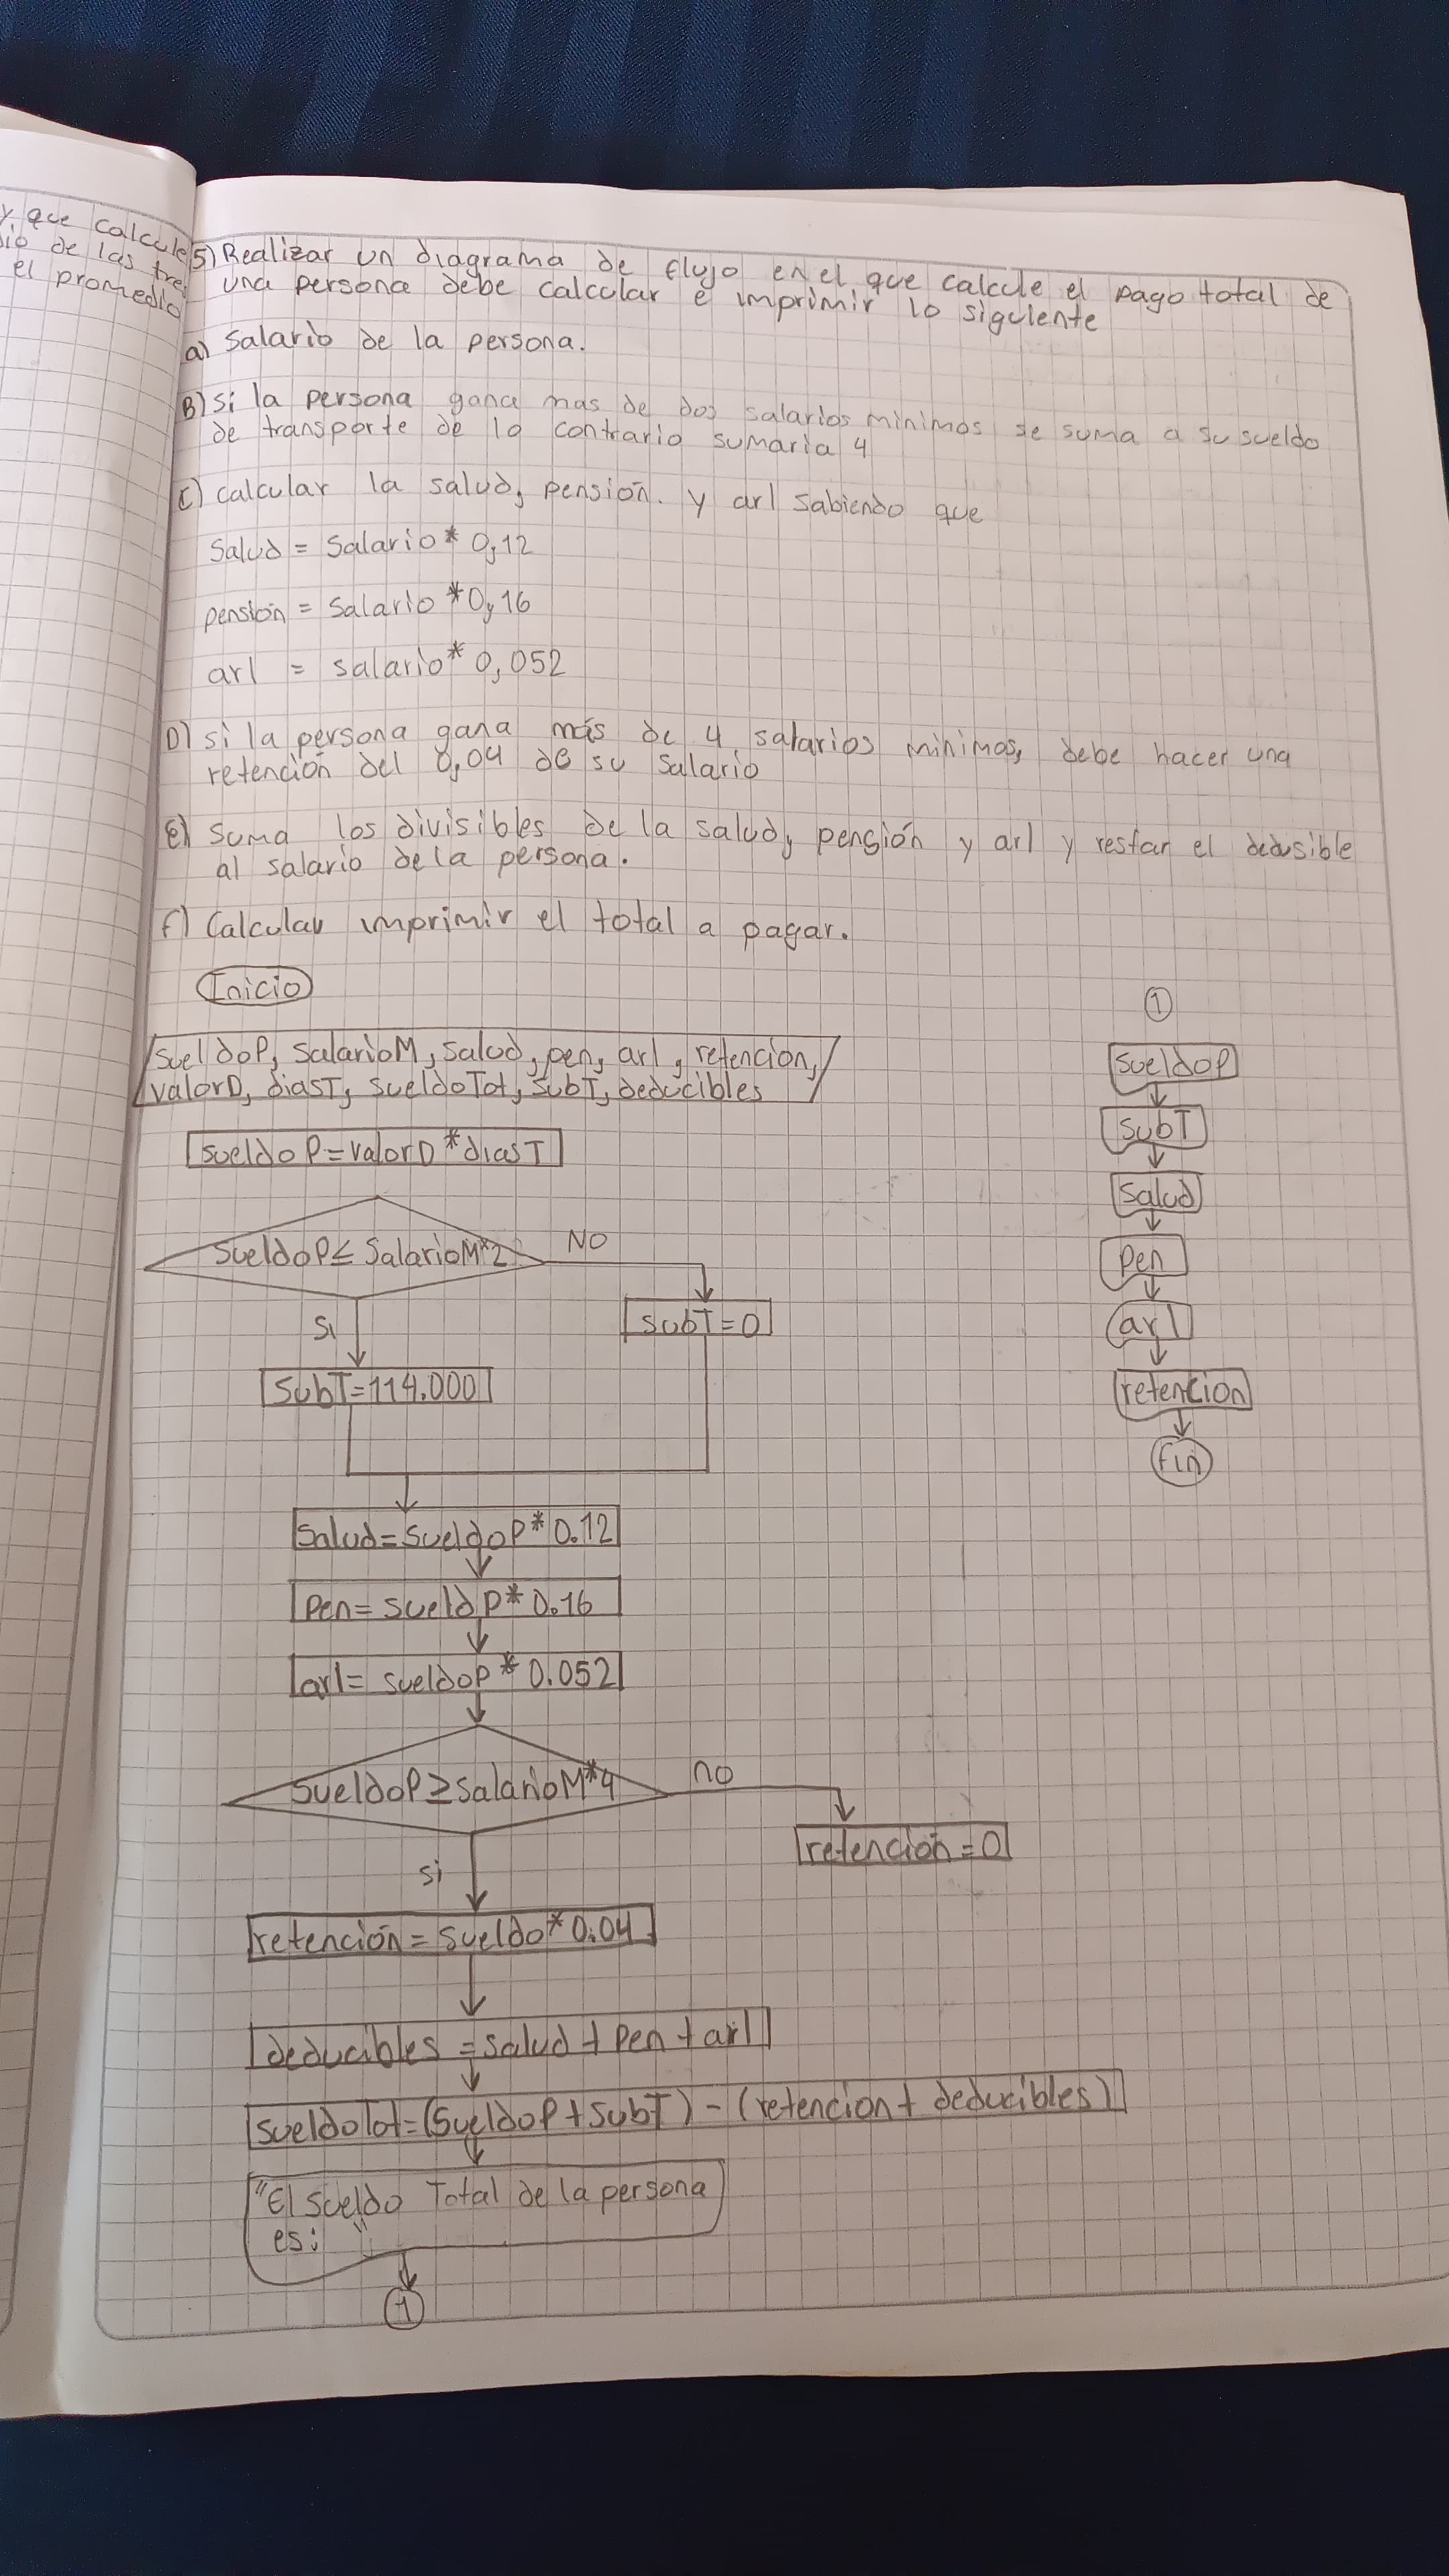 y que calcule
dio de las tres
el promedio
5) Realizar un diagrama de flujo en el que calcule el pago total de
una persona debe calcular e imprimir lo siguiente
a) Salario de la persona.
B) si la persona gana mas de dos salarios minimos se suma a su sueldo
de transporte de lo contrario sumaria 4
C) calcular la salud, pensión. y arl sabiendo que
Salud = Salario * 0,12
pensión = Salario * 0,16
arl = salario * 0,052
D) si la persona gana más de 4 salarios minimos, debe hacer una
retención del 0,04 de su Salario
e) Suma los divisibles de la salud, pensión y arl y restar el dedusible
al salario de la persona.
f) Calcular imprimir el total a pagar.
Inicio
SueldoP, SalarioM, Salud, pen, arl, retencion,
valorD, diasT, sueldoTot, SubT, deducibles
SueldoP=valorD*diasT
SueldoP≤ SalarioM*2
NO
Si
SubT=0
SubT=114.000
Salud=SueldoP*0.12
Pen= SueldP*0.16
arl= sueldoP*0.052
SueldoP≥SalarioM*4
no
Si
retención=0
retención=Sueldo*0.04
deducibles =Salud+Pen+arl
SueldoTot=(SueldoP+SubT)-(retencion+deducibles)
"El sueldo Total de la persona
es: "
1
1
SueldoP
SubT
Salud
Pen
arl
retencion
fin